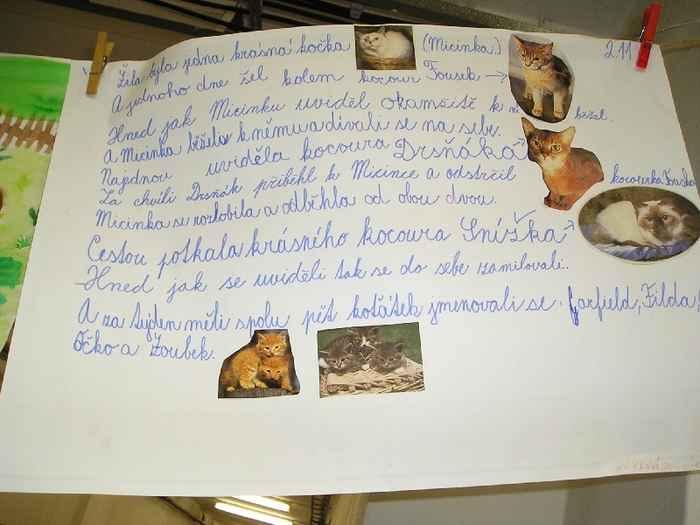 Žila byla jedna krásná kočka (Micinka.) 2.11
A jednoho dne šel kolem kocour Fousek →
Hned jak Micinku uviděl okamžitě k ní běžel.
A Micinka běžela k němu a dívali se na sebe.
Najednou uviděla kocoura Drsňáka
Za chvíli Drsňák přiběhl k Micince a odstrčil kocourka Fouska
Micinka se rozlobila a odběhla od obou dvou.
Cestou potkala krásného kocoura Snížka
Hned jak se uviděli tak se do sebe zamilovali.
A za týden měli spolu pět koťátek jmenovali se. Garfield, Filda,
Očko a Zoubek.